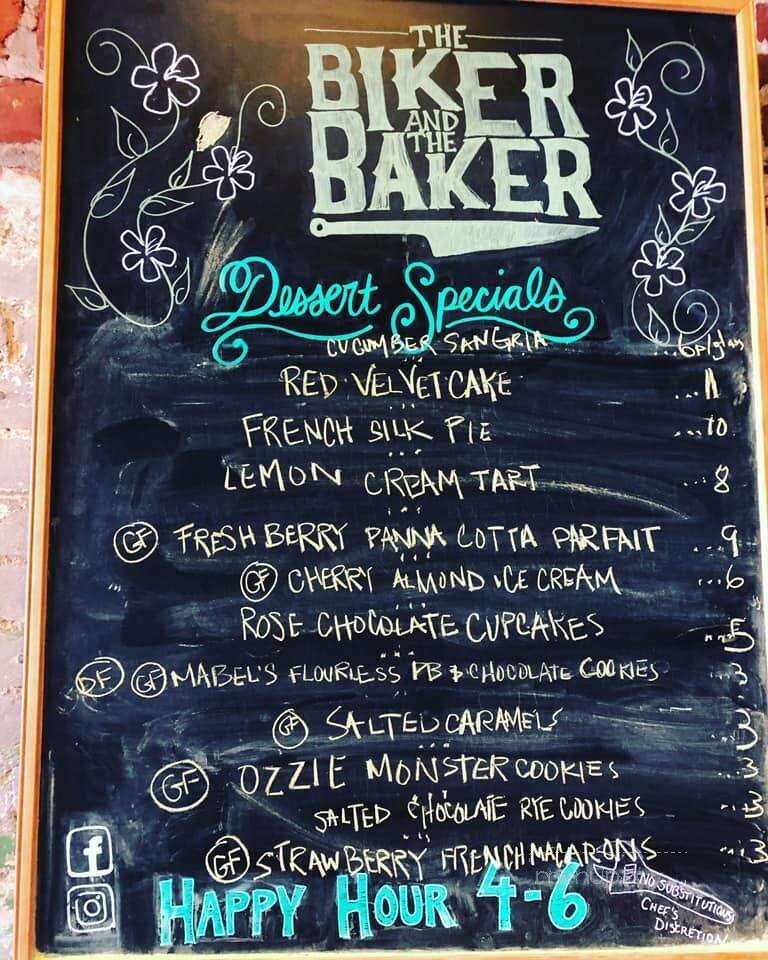 THE
BIKER
AND
THE
BAKER
Dessert Specials
CUCUMBER SANGRIA
RED VELVET CAKE ... 11
FRENCH SILK PIE ... 10
LEMON CREAM TART ... 8
GF FRESH BERRY PANNA COTTA PARFAIT ... 9
GF CHERRY ALMOND ICE CREAM ... 6
ROSE CHOCOLATE CUPCAKES ... 5
DF GF MABEL'S FLOURLESS PB & CHOCOLATE COOKIES ... 3
GF SALTED CARAMELS ... 3
GF OZZIE MONSTER COOKIES ... 3
SALTED CHOCOLATE RYE COOKIES ... 3
GF STRAWBERRY FRENCH MACARONS ... 3
HAPPY HOUR 4-6
NO SUBSTITUTIONS
CHEF'S
DISCRETION
f